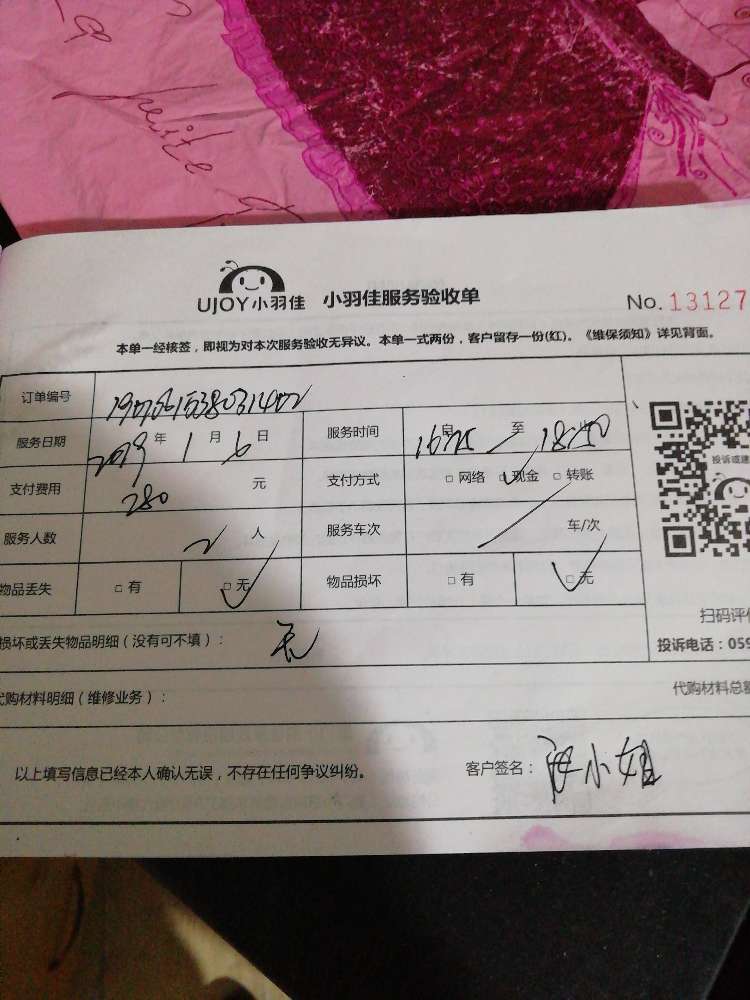 UJOY小羽佳 小羽佳服务验收单 No.13127
本单一经核签，即视为对本次服务验收无异议。本单一式两份，客户留存一份(红)。《维保须知》详见背面。
订单编号
服务日期 2019年1月6日 服务时间 至
支付费用 280 元 支付方式 □网络 □现金 □转账
服务人数 2人 服务车次 车/次
物品丢失 □有 □无 物品损坏 □有 □无
损坏或丢失物品明细（没有可不填）： 无
扫码评
投诉电话：059
代购材料明细（维修业务）： 代购材料总
以上填写信息已经本人确认无误，不存在任何争议纠纷。 客户签名： 小姐